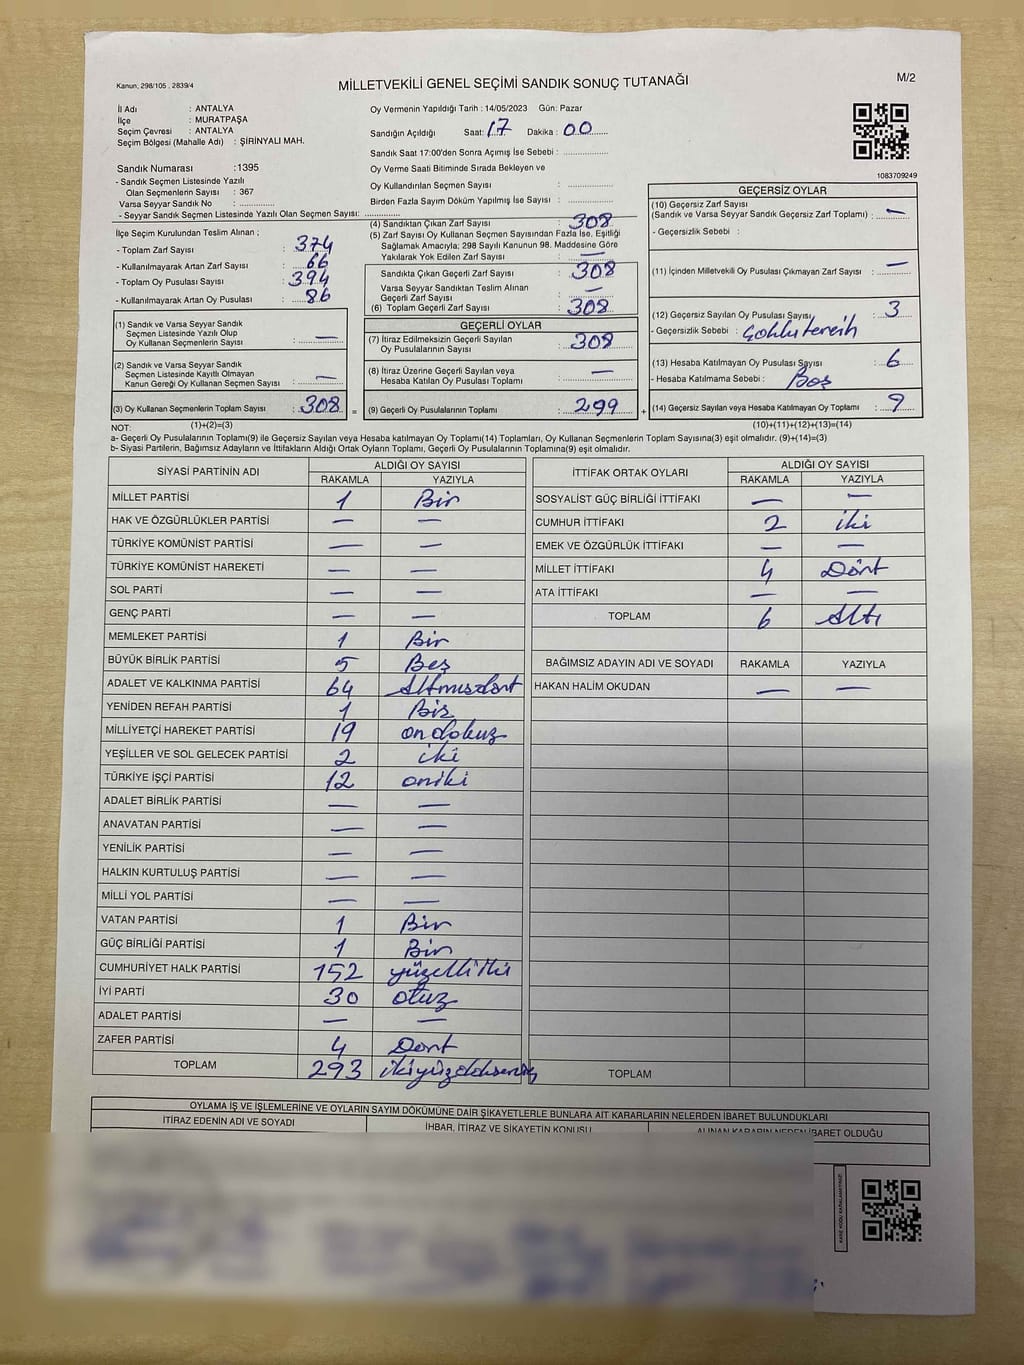 Kanun; 298/105 , 2839/4
MİLLETVEKİLİ GENEL SEÇİMİ SANDIK SONUÇ TUTANAĞI
M/2
İl Adı : ANTALYA
İlçe : MURATPAŞA
Seçim Çevresi : ANTALYA
Seçim Bölgesi (Mahalle Adı) : ŞİRİNYALI MAH.
Oy Vermenin Yapıldığı Tarih : 14/05/2023 Gün: Pazar
Sandığın Açıldığı Saat: 17 Dakika : 00
Sandık Saat 17:00'den Sonra Açımış İse Sebebi :
Oy Verme Saati Bitiminde Sırada Bekleyen ve
Oy Kullandırılan Seçmen Sayısı :
Birden Fazla Sayım Döküm Yapılmış İse Sayısı :
1083709249
Sandık Numarası :1395
- Sandık Seçmen Listesinde Yazılı
Olan Seçmenlerin Sayısı : 367
Varsa Seyyar Sandık No :
- Seyyar Sandık Seçmen Listesinde Yazılı Olan Seçmen Sayısı:
İlçe Seçim Kurulundan Teslim Alınan ;
- Toplam Zarf Sayısı : 374
- Kullanılmayarak Artan Zarf Sayısı : 66
- Toplam Oy Pusulası Sayısı : 394
- Kullanılmayarak Artan Oy Pusulası : 86
(1) Sandık ve Varsa Seyyar Sandık
Seçmen Listesinde Yazılı Olup
Oy Kullanan Seçmenlerin Sayısı : —
(2) Sandık ve Varsa Seyyar Sandık
Seçmen Listesinde Kayıtlı Olmayan
Kanun Gereği Oy Kullanan Seçmen Sayısı : —
(3) Oy Kullanan Seçmenlerin Toplam Sayısı : 308 =
(4) Sandıktan Çıkan Zarf Sayısı : 308
(5) Zarf Sayısı Oy Kullanan Seçmen Sayısından Fazla İse, Eşitliği
Sağlamak Amacıyla; 298 Sayılı Kanunun 98. Maddesine Göre
Yakılarak Yok Edilen Zarf Sayısı : —
Sandıkta Çıkan Geçerli Zarf Sayısı : 308
Varsa Seyyar Sandıktan Teslim Alınan
Geçerli Zarf Sayısı : —
(6) Toplam Geçerli Zarf Sayısı : 308
GEÇERLİ OYLAR
(7) İtiraz Edilmeksizin Geçerli Sayılan
Oy Pusulasının Sayısı : 308
(8) İtiraz Üzerine Geçerli Sayılan veya
Hesaba Katılan Oy Pusulası Toplamı : —
(9) Geçerli Oy Pusulalarının Toplamı : 299 +
GEÇERSİZ OYLAR
(10) Geçersiz Zarf Sayısı
(Sandık ve Varsa Seyyar Sandık Geçersiz Zarf Toplamı) : —
- Geçersizlik Sebebi :
(11) İçinden Milletvekili Oy Pusulası Çıkmayan Zarf Sayısı : —
(12) Geçersiz Sayılan Oy Pusulası Sayısı : 3
- Geçersizlik Sebebi : Çoklu tercih
(13) Hesaba Katılmayan Oy Pusulası Sayısı : 6
- Hesaba Katılmama Sebebi : Boş
(14) Geçersiz Sayılan veya Hesaba Katılmayan Oy Toplamı : 9
NOT: (1)+(2)=(3) (10)+(11)+(12)+(13)=(14)
a- Geçerli Oy Pusulalarının Toplamı(9) ile Geçersiz Sayılan veya Hesaba katılmayan Oy Toplamı(14) Toplamları, Oy Kullanan Seçmenlerin Toplam Sayısına(3) eşit olmalıdır. (9)+(14)=(3)
b- Siyasi Partilerin, Bağımsız Adayların ve İttifakların Aldığı Ortak Oyların Toplamı, Geçerli Oy Pusulalarının Toplamına(9) eşit olmalıdır.
SİYASİ PARTİNİN ADI ALDIĞI OY SAYISI
RAKAMLA YAZIYLA
MİLLET PARTİSİ 1 Bir
HAK VE ÖZGÜRLÜKLER PARTİSİ — —
TÜRKİYE KOMÜNİST PARTİSİ — —
TÜRKİYE KOMÜNİST HAREKETİ — —
SOL PARTİ — —
GENÇ PARTİ — —
MEMLEKET PARTİSİ 1 Bir
BÜYÜK BİRLİK PARTİSİ 5 Beş
ADALET VE KALKINMA PARTİSİ 64 Altmışdört
YENİDEN REFAH PARTİSİ 1 Bir
MİLLİYETÇİ HAREKET PARTİSİ 19 ondokuz
YEŞİLLER VE SOL GELECEK PARTİSİ 2 iki
TÜRKİYE İŞÇİ PARTİSİ 12 oniki
ADALET BİRLİK PARTİSİ — —
ANAVATAN PARTİSİ — —
YENİLİK PARTİSİ — —
HALKIN KURTULUŞ PARTİSİ — —
MİLLİ YOL PARTİSİ — —
VATAN PARTİSİ 1 Bir
GÜÇ BİRLİĞİ PARTİSİ 1 Bir
CUMHURİYET HALK PARTİSİ 152 yüzelliiki
İYİ PARTİ 30 otuz
ADALET PARTİSİ — —
ZAFER PARTİSİ 4 Dört
TOPLAM 293
İTTİFAK ORTAK OYLARI ALDIĞI OY SAYISI
RAKAMLA YAZIYLA
SOSYALİST GÜÇ BİRLİĞİ İTTİFAKI — —
CUMHUR İTTİFAKI 2 iki
EMEK VE ÖZGÜRLÜK İTTİFAKI — —
MİLLET İTTİFAKI 4 Dört
ATA İTTİFAKI — —
TOPLAM 6 Altı
BAĞIMSIZ ADAYIN ADI VE SOYADI RAKAMLA YAZIYLA
HAKAN HALİM OKUDAN — —
TOPLAM
OYLAMA İŞ VE İŞLEMLERİNE VE OYLARIN SAYIM DÖKÜMÜNE DAİR ŞİKAYETLERLE BUNLARA AİT KARARLARIN NELERDEN İBARET BULUNDUKLARI
İTİRAZ EDENİN ADI VE SOYADI İHBAR, İTİRAZ VE ŞİKAYETİN KONUSU ALINAN KARARIN NEDEN İBARET OLDUĞU